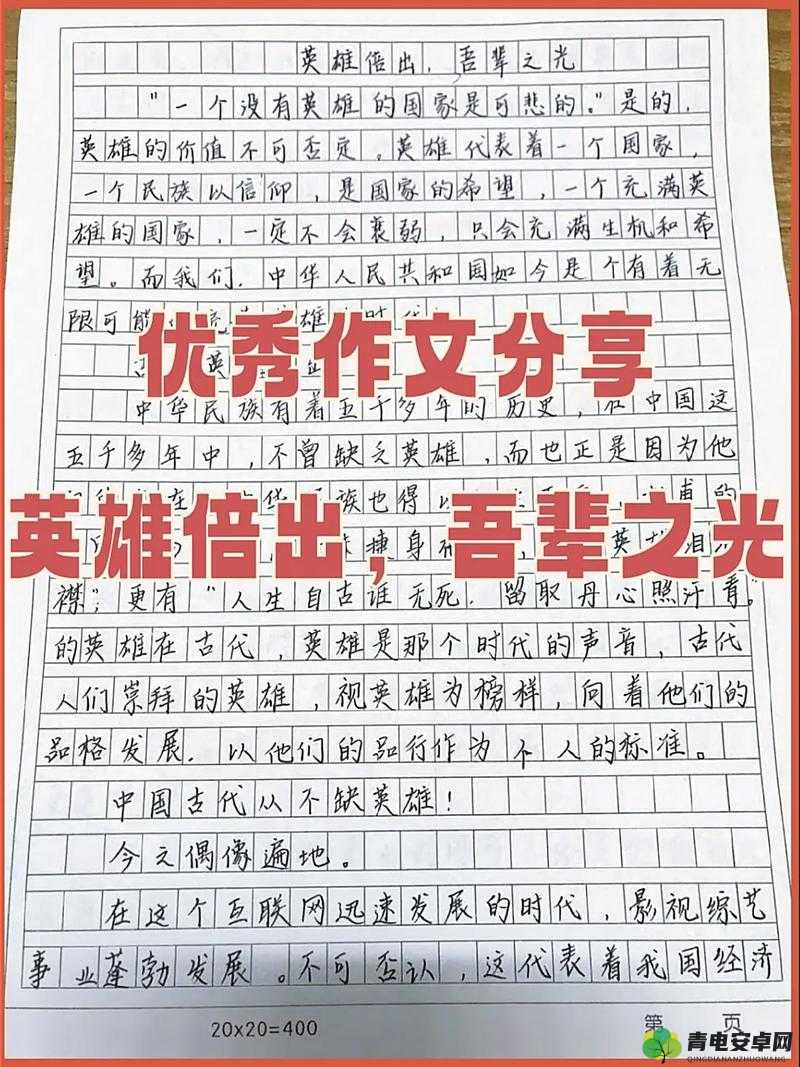 英雄倍出，吾辈之光
"一个没有英雄的国家是可悲的。"是的，
英雄的价值不可否定。英雄代表着一个国家，
一个民族以信仰，是国家的希望，一个充满英
雄的国家，一定不会衰弱，只会充满生机和希
望。而我们．中华人民共和国如今是个有着无
限可能
优秀作文分享
中华民族有着五千多年的历史，在中国这
五千多年中，不曾缺乏英雄，而也正是因为他
英雄倍出，吾辈之光
襟"；更有"人生自古谁无死．留取丹心照汗青。"
的英雄在古代，英雄是那个时代的声音，古代
人们崇拜的英雄，视英雄为榜样，向着他们的
品格发展．以他们的品行作为个人的标准。
中国古代从不缺英雄！
今之偶像遍地。
在这个互联网迅速发展的时代，影视综艺
事业蓬勃发展。不可否认，这代表着我国经济
20x20=400
第 页
青电安卓网
QINGDIANANZHUOWANG